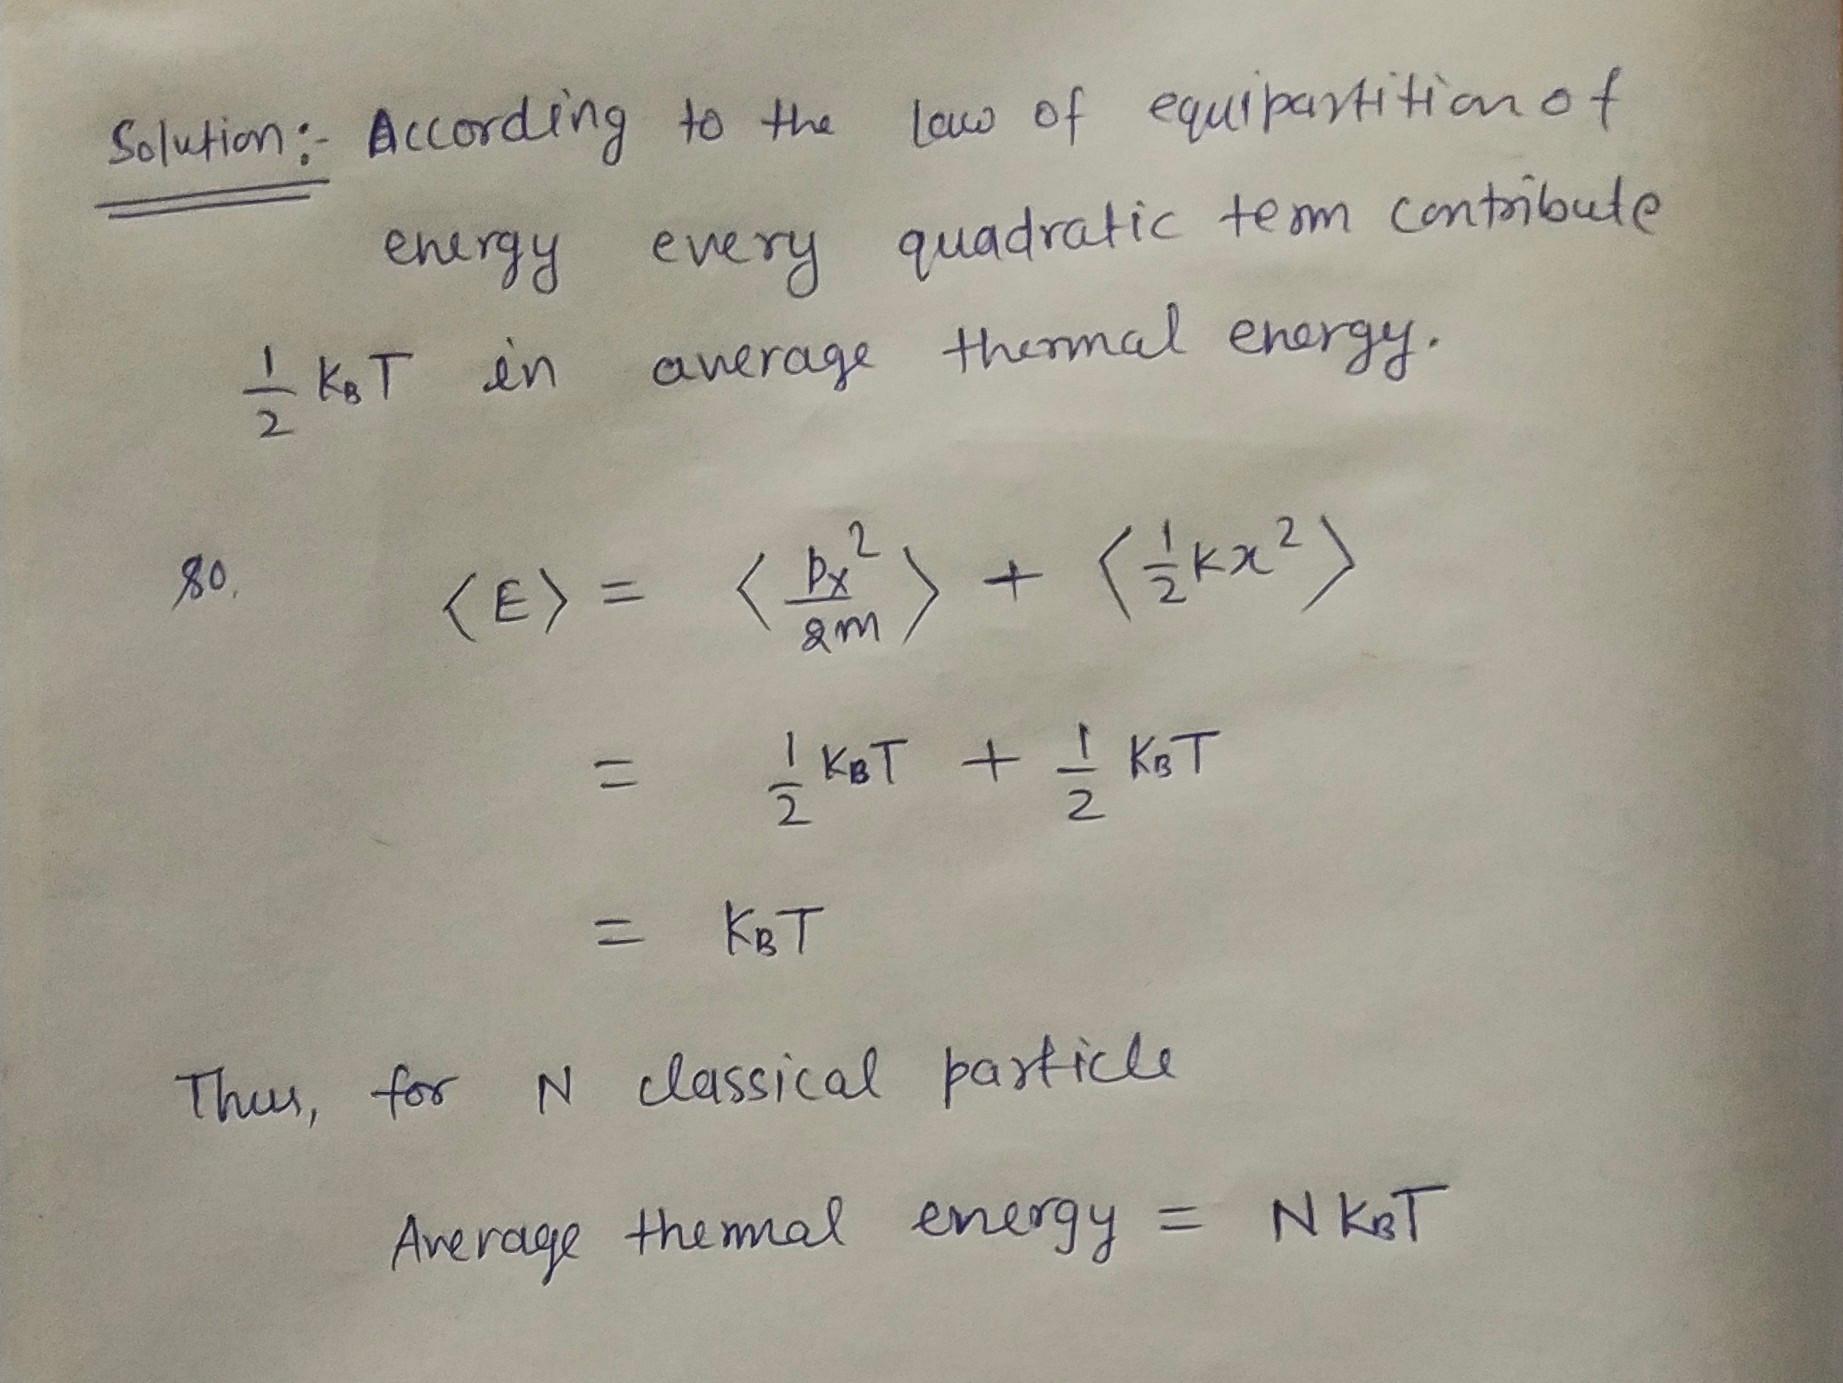 Solution :- According to the law of equipartition of
energy every quadratic term contribute
1/2 KBT in average thermal energy.
so, ⟨E⟩ = ⟨px²/2m⟩ + ⟨1/2 kx²⟩
= 1/2 KBT + 1/2 KBT
= KBT
Thus, for N classical particle
Average thermal energy = N KBT